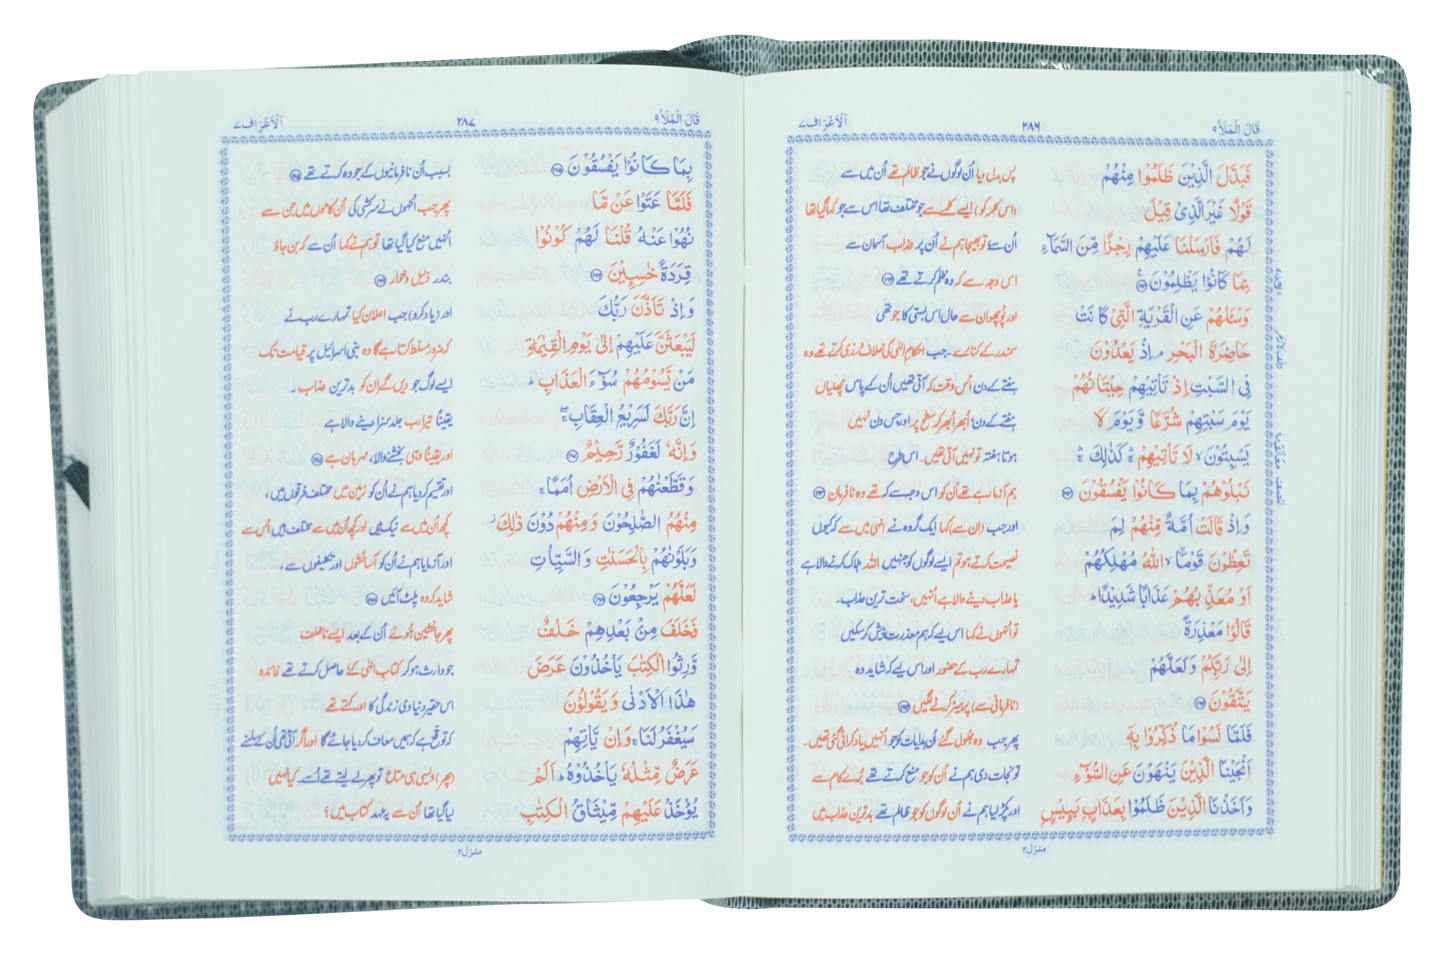 قَالَ الْمَلَاُ ٩
٢٨٦
اَلْاَعْرَاف ٧
فَبَدَّلَ الَّذِيْنَ ظَلَمُوْا مِنْهُمْ
پس بدل دیا اُن لوگوں نے جو ظالم تھے اُن میں سے
قَوْلًا غَيْرَ الَّذِىْ قِيْلَ
لَهُمْ فَاَرْسَلْنَا عَلَيْهِمْ رِجْزًا مِّنَ السَّمَآءِ
اُن سے تو بھیجا ہم نے اُن پر عذاب آسمان سے
بِمَا كَانُوْا يَظْلِمُوْنَ
اس وجہ سے کہ وہ ظلم کرتے تھے
وَسْئَلْهُمْ عَنِ الْقَرْيَةِ الَّتِىْ كَانَتْ
اور پُوچھو ان سے حال اس بستی کا جو تھی
حَاضِرَةَ الْبَحْرِ ۘ اِذْ يَعْدُوْنَ
سمندر کے کنارے۔ جب احکامِ الٰہی کی خلاف ورزی کرتے تھے وہ
فِى السَّبْتِ اِذْ تَاْتِيْهِمْ حِيْتَانُهُمْ
ہفتے کے دن اُس وقت کہ آتی تھیں اُن کے پاس مچھلیاں
يَوْمَ سَبْتِهِمْ شُرَّعًا وَّيَوْمَ لَا
ہفتے کے دن اُبھر اُبھر کر سطح پر اور جس دن نہیں
يَسْبِتُوْنَ ۙ لَا تَاْتِيْهِمْ ۛۚ كَذٰلِكَ ۛۚ
ہوتا ہفتہ تو نہیں آتی تھیں۔ اس طرح
نَبْلُوْهُمْ بِمَا كَانُوْا يَفْسُقُوْنَ
ہم آزما رہے تھے اُن کو اس وجہ سے کہ تھے وہ نافرمان
وَاِذْ قَالَتْ اُمَّةٌ مِّنْهُمْ لِمَ
اور جب (ان سے) کہا ایک گروہ نے انہی میں سے کہ کیوں
تَعِظُوْنَ قَوْمًا ۙ اللّٰهُ مُهْلِكُهُمْ
نصیحت کرتے ہو تم ایسے لوگوں کو جنہیں اللہ ہلاک کرنے والا ہے
اَوْ مُعَذِّبُهُمْ عَذَابًا شَدِيْدًا ؕ
یا عذاب دینے والا ہے اُنہیں، سخت ترین عذاب۔
قَالُوْا مَعْذِرَةً
تو اُنہوں نے کہا اس لیے کہ ہم معذرت پیش کر سکیں
اِلٰى رَبِّكُمْ وَلَعَلَّهُمْ
تمہارے رب کے حضور اور اس لیے کہ شاید وہ
يَتَّقُوْنَ
(نافرمانی سے) پرہیز کرنے لگیں
فَلَمَّا نَسُوْا مَا ذُكِّرُوْا بِهٖٓ
پھر جب وہ بھول گئے اُن ہدایات کو جو اُنہیں یاد کرائی گئی تھیں۔
اَنْجَيْنَا الَّذِيْنَ يَنْهَوْنَ عَنِ السُّوْٓءِ
تو نجات دی ہم نے اُن کو جو منع کرتے تھے بُرے کام سے
وَاَخَذْنَا الَّذِيْنَ ظَلَمُوْا بِعَذَابٍۢ بَئِيْسٍۢ
اور پکڑ لیا ہم نے اُن لوگوں کو جو ظالم تھے بدترین عذاب میں
منزل ٢
قَالَ الْمَلَاُ ٩
٢٨٧
اَلْاَعْرَاف ٧
بِمَا كَانُوْا يَفْسُقُوْنَ
بسبب اُن نافرمانیوں کے جو وہ کرتے تھے
فَلَمَّا عَتَوْا عَنْ مَّا
پھر جب اُنہوں نے سرکشی کی اُن کاموں میں جن سے
نُهُوْا عَنْهُ قُلْنَا لَهُمْ كُوْنُوْا
اُنہیں منع کیا گیا تھا تو ہم نے کہا اُن سے کہ بن جاؤ
قِرَدَةً خٰسِئِيْنَ
بندر ذلیل و خوار
وَاِذْ تَاَذَّنَ رَبُّكَ
اور (یاد کرو) جب اعلان کیا تمہارے رب نے
لَيَبْعَثَنَّ عَلَيْهِمْ اِلٰى يَوْمِ الْقِيٰمَةِ
کہ ضرور مسلط کرتا رہے گا وہ بنی اسرائیل پر قیامت تک
مَنْ يَّسُوْمُهُمْ سُوْٓءَ الْعَذَابِ ؕ
ایسے لوگ جو دیں گے ان کو بدترین عذاب۔
اِنَّ رَبَّكَ لَسَرِيْعُ الْعِقَابِ ۖۚ
یقینًا تیرا رب جلد سزا دینے والا ہے
وَاِنَّهٗ لَغَفُوْرٌ رَّحِيْمٌ
اور یقینًا وہی بخشنے والا، مہربان ہے
وَقَطَّعْنٰهُمْ فِى الْاَرْضِ اُمَمًا ۚ
اور تقسیم کر دیا ہم نے اُن کو زمین میں مختلف فرقوں میں،
مِنْهُمُ الصّٰلِحُوْنَ وَمِنْهُمْ دُوْنَ ذٰلِكَ ؗ
کچھ اُن میں سے نیک ہیں اور کچھ اُن میں سے مختلف ہیں اُس سے
وَبَلَوْنٰهُمْ بِالْحَسَنٰتِ وَالسَّيِّاٰتِ
اور آزمایا ہم نے اُن کو آسائشوں اور تکلیفوں سے،
لَعَلَّهُمْ يَرْجِعُوْنَ
شاید کہ وہ پلٹ آئیں
فَخَلَفَ مِنْۢ بَعْدِهِمْ خَلْفٌ
پھر جانشین ہوئے اُن کے بعد ایسے ناخلف
وَّرِثُوا الْكِتٰبَ يَاْخُذُوْنَ عَرَضَ
جو وارث ہو کر کتابِ الٰہی کے حاصل کرتے تھے فائدہ
هٰذَا الْاَدْنٰى وَيَقُوْلُوْنَ
اس حقیر دنیاوی زندگی کا اور کہتے تھے
سَيُغْفَرُ لَنَا ۚ وَاِنْ يَّاْتِهِمْ
عَرَضٌ مِّثْلُهٗ يَاْخُذُوْهُ ؕ اَلَمْ
(پھر) ویسی ہی متاع تو پھر لے لیتے تھے اُسے کیا نہیں
يُؤْخَذْ عَلَيْهِمْ مِّيْثَاقُ الْكِتٰبِ
لیا گیا تھا اُن سے یہ عہد کتاب میں؟
منزل ٢